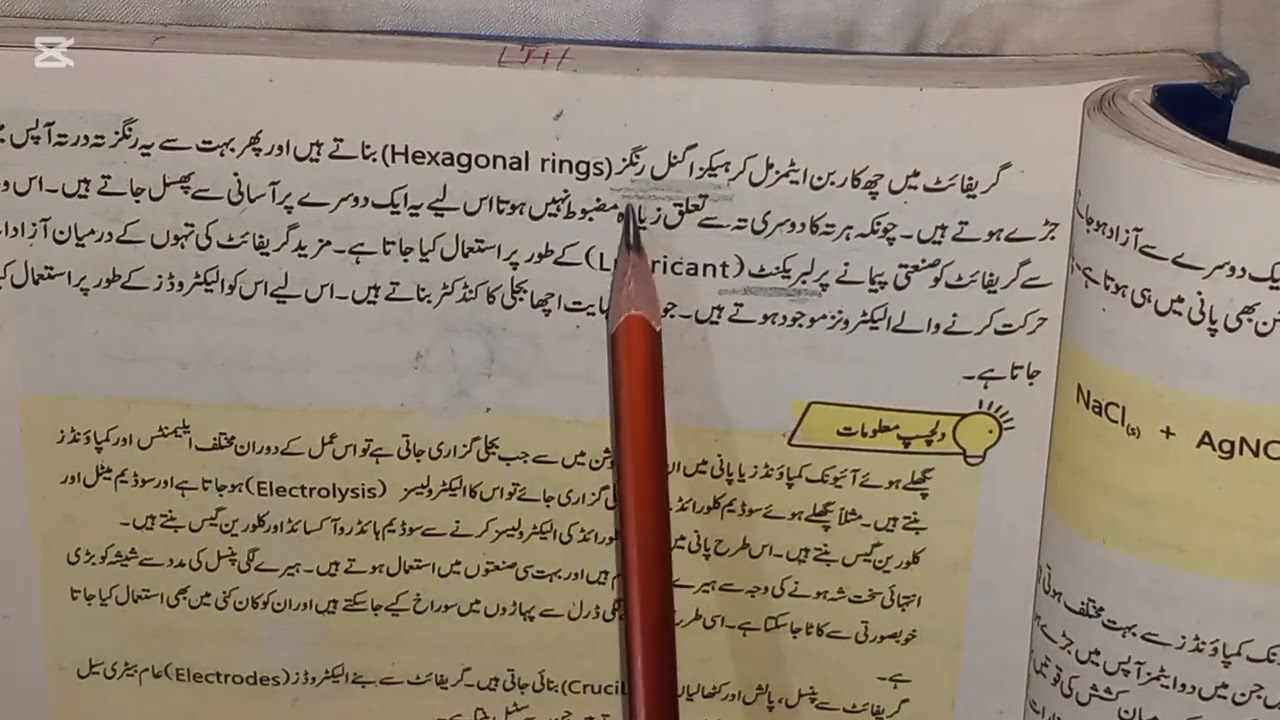 گریفائٹ میں چھ کاربن ایٹمز مل کر ہیکزاگنل رنگز (Hexagonal rings) بناتے ہیں اور پھر بہت سے یہ رنگز تہ در تہ آپس
جڑے ہوتے ہیں۔ چونکہ ہر تہ کا دوسری تہ سے تعلق زیادہ مضبوط نہیں ہوتا اس لیے یہ ایک دوسرے پر آسانی سے پھسل جاتے ہیں۔ اس
سے گریفائٹ کو صنعتی پیمانے پر لبریکنٹ (Lubricant) کے طور پر استعمال کیا جاتا ہے۔ مزید گریفائٹ کی تہوں کے درمیان
حرکت کرنے والے الیکٹرونز موجود ہوتے ہیں۔ اچھا بجلی کا کنڈکٹر بناتے ہیں۔ اس لیے اس کو الیکٹروڈز کے طور پر استعمال
جاتا ہے۔
دلچسپ معلومات
پگھلے ہوئے آئیونک کمپاؤنڈز یا پانی میں میں سے جب بجلی گزاری جاتی ہے تو اس عمل کے دوران مختلف ایلیمنٹس اور کمپاؤنڈز
بنتے ہیں۔ مثلاً پگھلے ہوئے سوڈیم کلورائڈ گزاری جائے تو اس کا الیکٹرولیسز (Electrolysis) ہو جاتا ہے اور سوڈیم میٹل اور
کلورین گیس بنتے ہیں۔ اس طرح پانی میں کی الیکٹرولیسز کرنے سے سوڈیم ہائڈروآکسائڈ اور کلورین گیس بنتے ہیں۔
انتہائی سخت شہ ہونے کی وجہ سے ہیرے ہیں اور بہت سی صنعتوں میں استعمال ہوتے ہیں۔ ہیرے لگی پنسل کی مدد سے شیشہ کو بڑی
خوبصورتی سے کاٹا جا سکتا ہے۔ اسی طرح لگی ڈرل سے پہاڑوں میں سوراخ کیے جا سکتے ہیں اور ان کو کان کنی میں بھی استعمال کیا جاتا
ہے۔
گریفائٹ سے پنسل، پالش اور کٹھالیاں بنائی جاتی ہیں۔ گریفائٹ سے بنے الیکٹروڈز (Electrodes) عام بیٹری سیل
یک دوسرے سے آزاد ہو جا
بھی پانی میں ہی ہوتا ہے۔
NaCl(s) + AgNO
کمپاؤنڈز سے بہت مختلف ہوتی
جن میں دو ایٹمز آپس میں جڑے
کشش کی